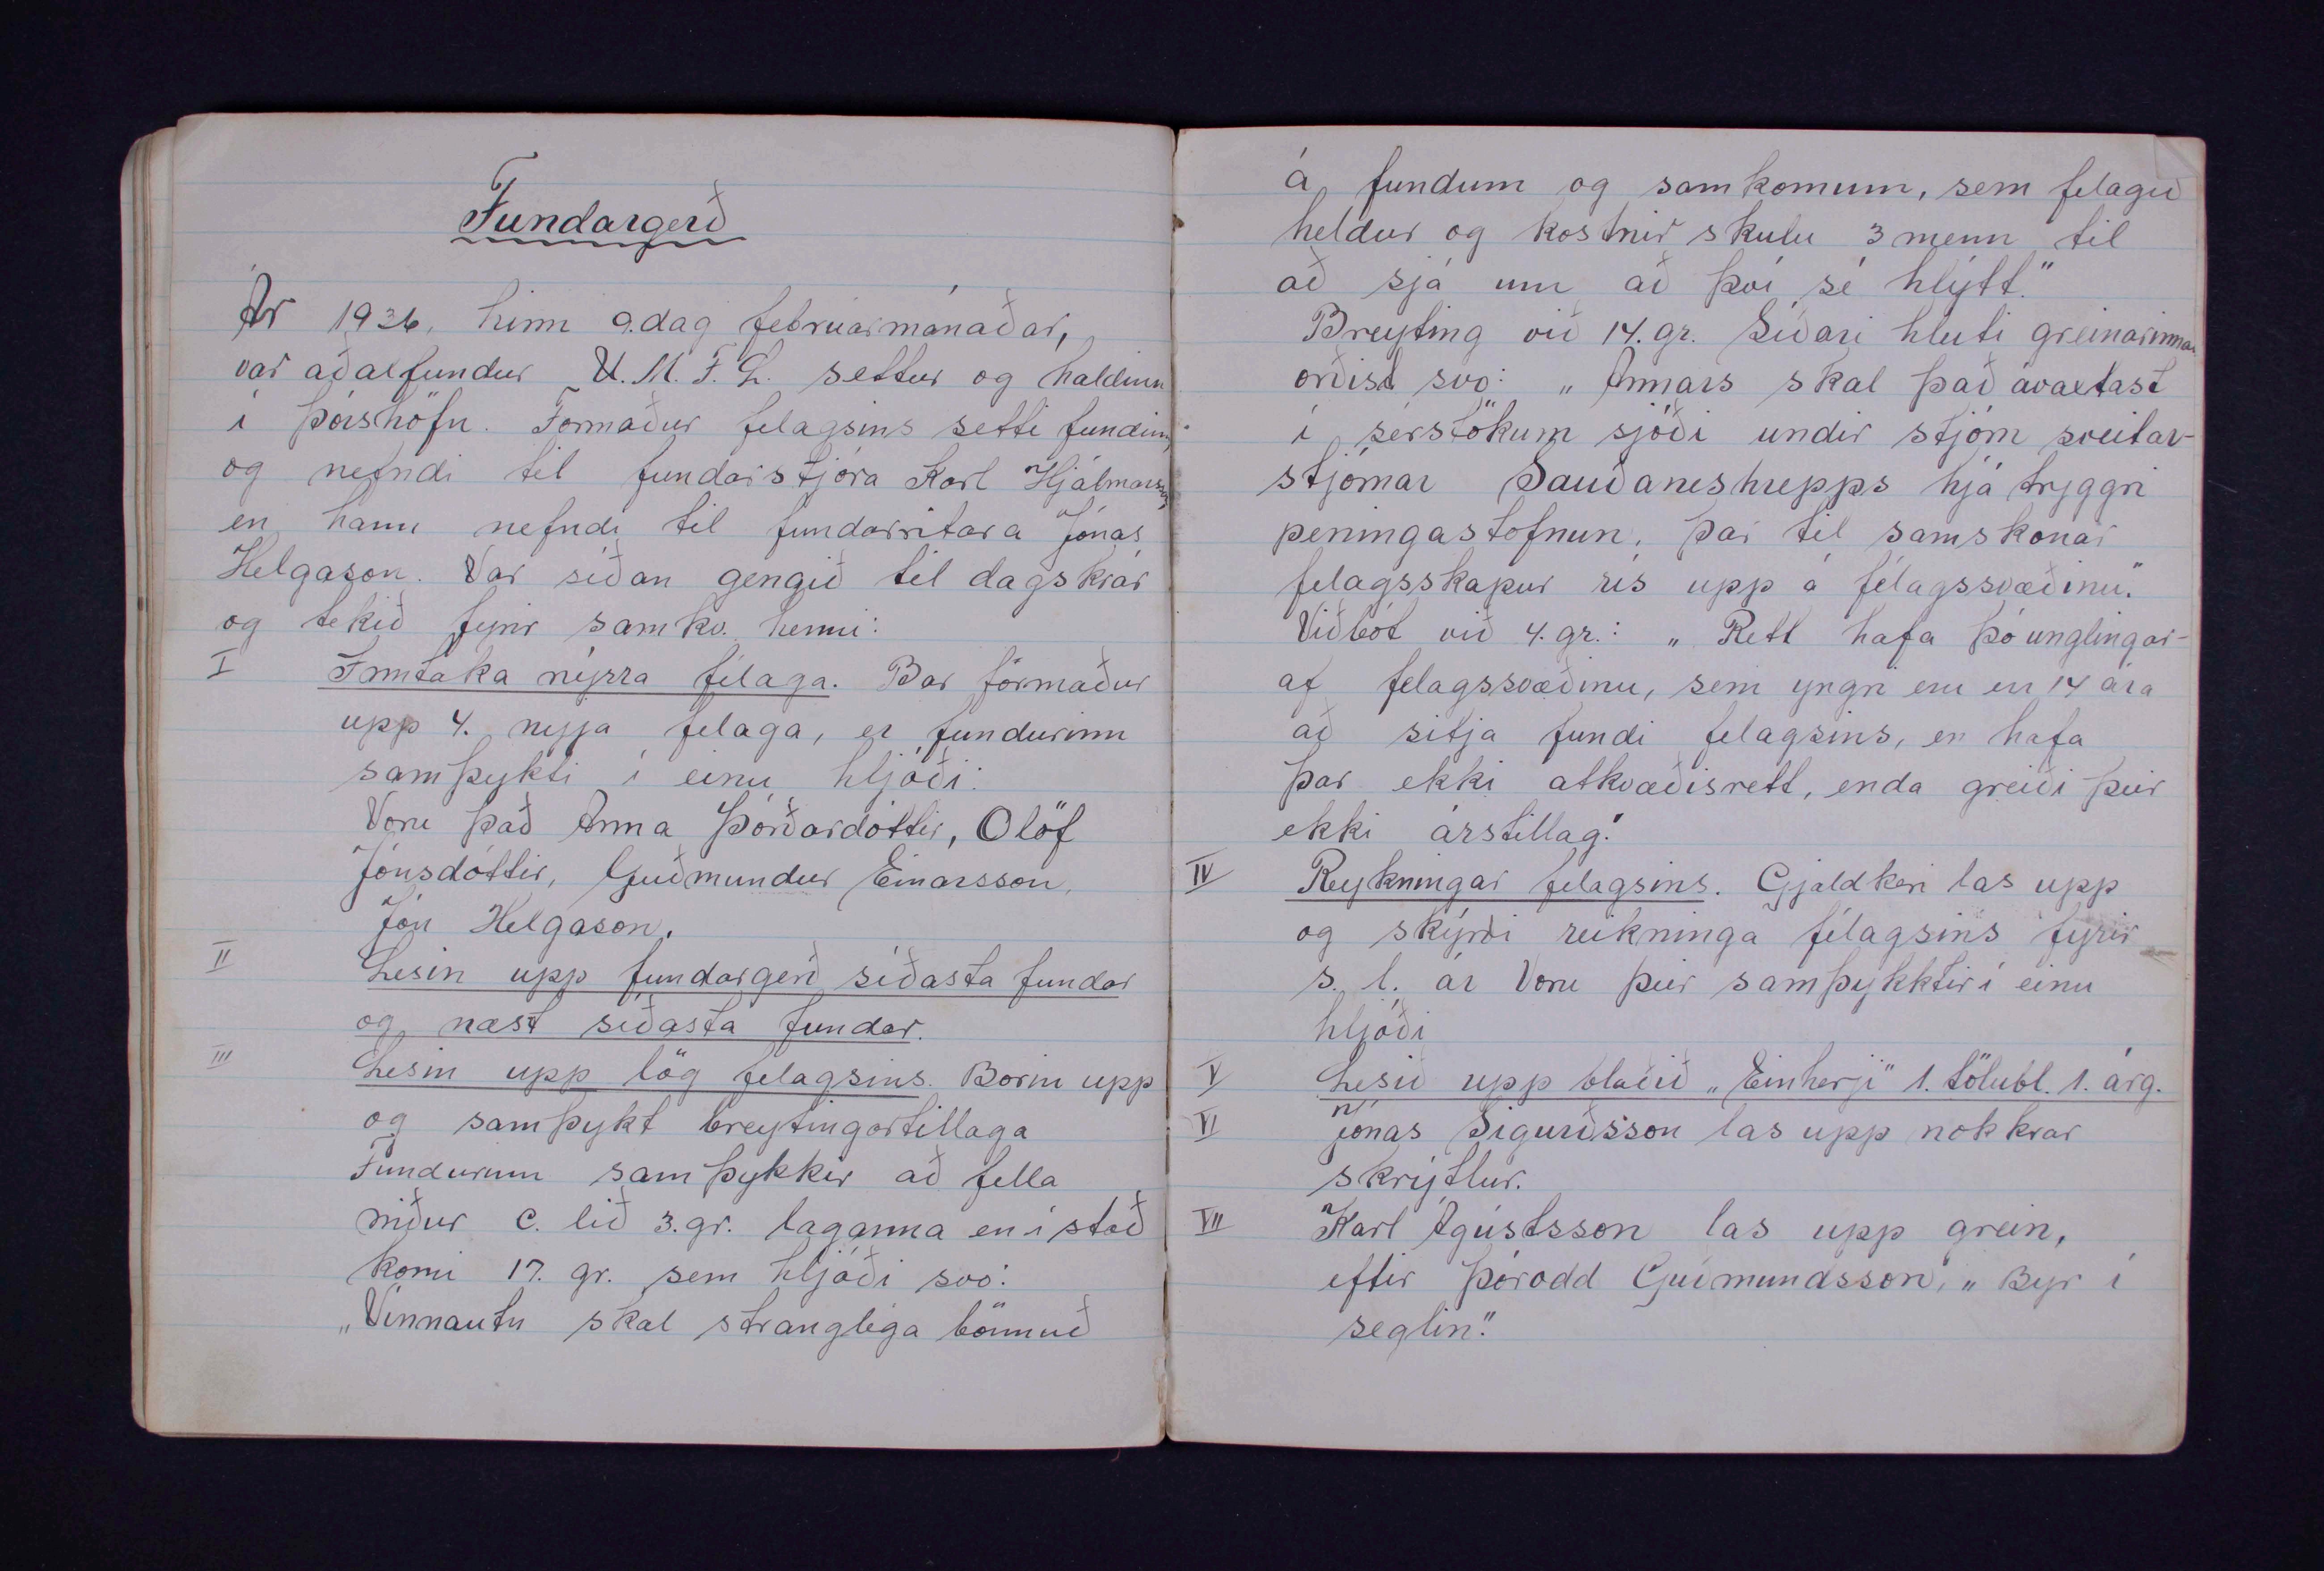 Fundargerð
Ár 1936, hinn 9. dag febrúarmánaðar,
var aðalfundur U.M.F.L. settur og haldinn
í Þórshöfn. Formaður felagsins setti fundinn,
og nefndi til fundarstjóra Karl Hjálmarsson,
en hann nefndi til fundarritara Jónas
Helgason. Var síðan gengið til dagskrár
og tekið fyrir samkv. henni:
I Inntaka nýrra félaga. Bar formaður
upp 4. nyja felaga, er fundurinn
samþykti í einu hljóði:
Voru það Anna Þórðardóttir, Olöf
Jónsdóttir, Guðmundur Einarsson,
Jón Helgason.
II Lesin upp fundargerð síðasta fundar
og næst síðasta fundar.
III Lesin upp lög felagsins. Borin upp
og samþykt breytingartillaga
Fundurinn samþykkir að fella
niður c. lið 3. gr. laganna en í stað
komi 17. gr. sem hljóði svo:
„Vínnautn skal stranglega bönnuð
á fundum og samkomum, sem felagið
heldur og kostnir skulu 3 menn til
að sjá um að því sé hlýtt."
Breyting við 14. gr. Síðari hluti greinarinnar
orðist svo: „Annars skal það ávaxtast
í sérstökum sjóði undir stjórn sveitar-
stjórnar Sauðaneshrepps hjá tryggri
peningastofnun, þar til samskonar
felagsskapur rís upp á félagssvæðinu."
Viðbót við 4. gr.: „Rett hafa þó unglingar
af felagssvæðinu, sem yngri eru en 14 ára
að sitja fundi felagsins, en hafa
þar ekki atkvæðisrett, enda greiði þeir
ekki árstillag."
IV Reykningar felagsins. Gjaldkeri las upp
og skýrði reikninga félagsins fyrir
s. l. ár Voru þeir samþykktir í einu
hljóði
V Lesið upp blaðið „Einherji" 1. tölubl. 1. árg.
VI Jónas Sigurðsson las upp nokkrar
skrýtlur.
VII Karl Ágústsson las upp grein,
eftir Þórodd Guðmundsson, „Byr í
seglin."